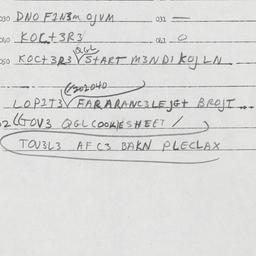 030 DNO F1N3m OJVM 031 —
040 KOCt3R3 041 0
QGL
050 KOCt3R3 StART M3ND1 KOJLN
202040
LOPIT3 FARARANC3LEJGt BROJT ...
TOV3 QGLCOOKIESHEET /
TOU3L3 AFC3 BAKN PLECLAX